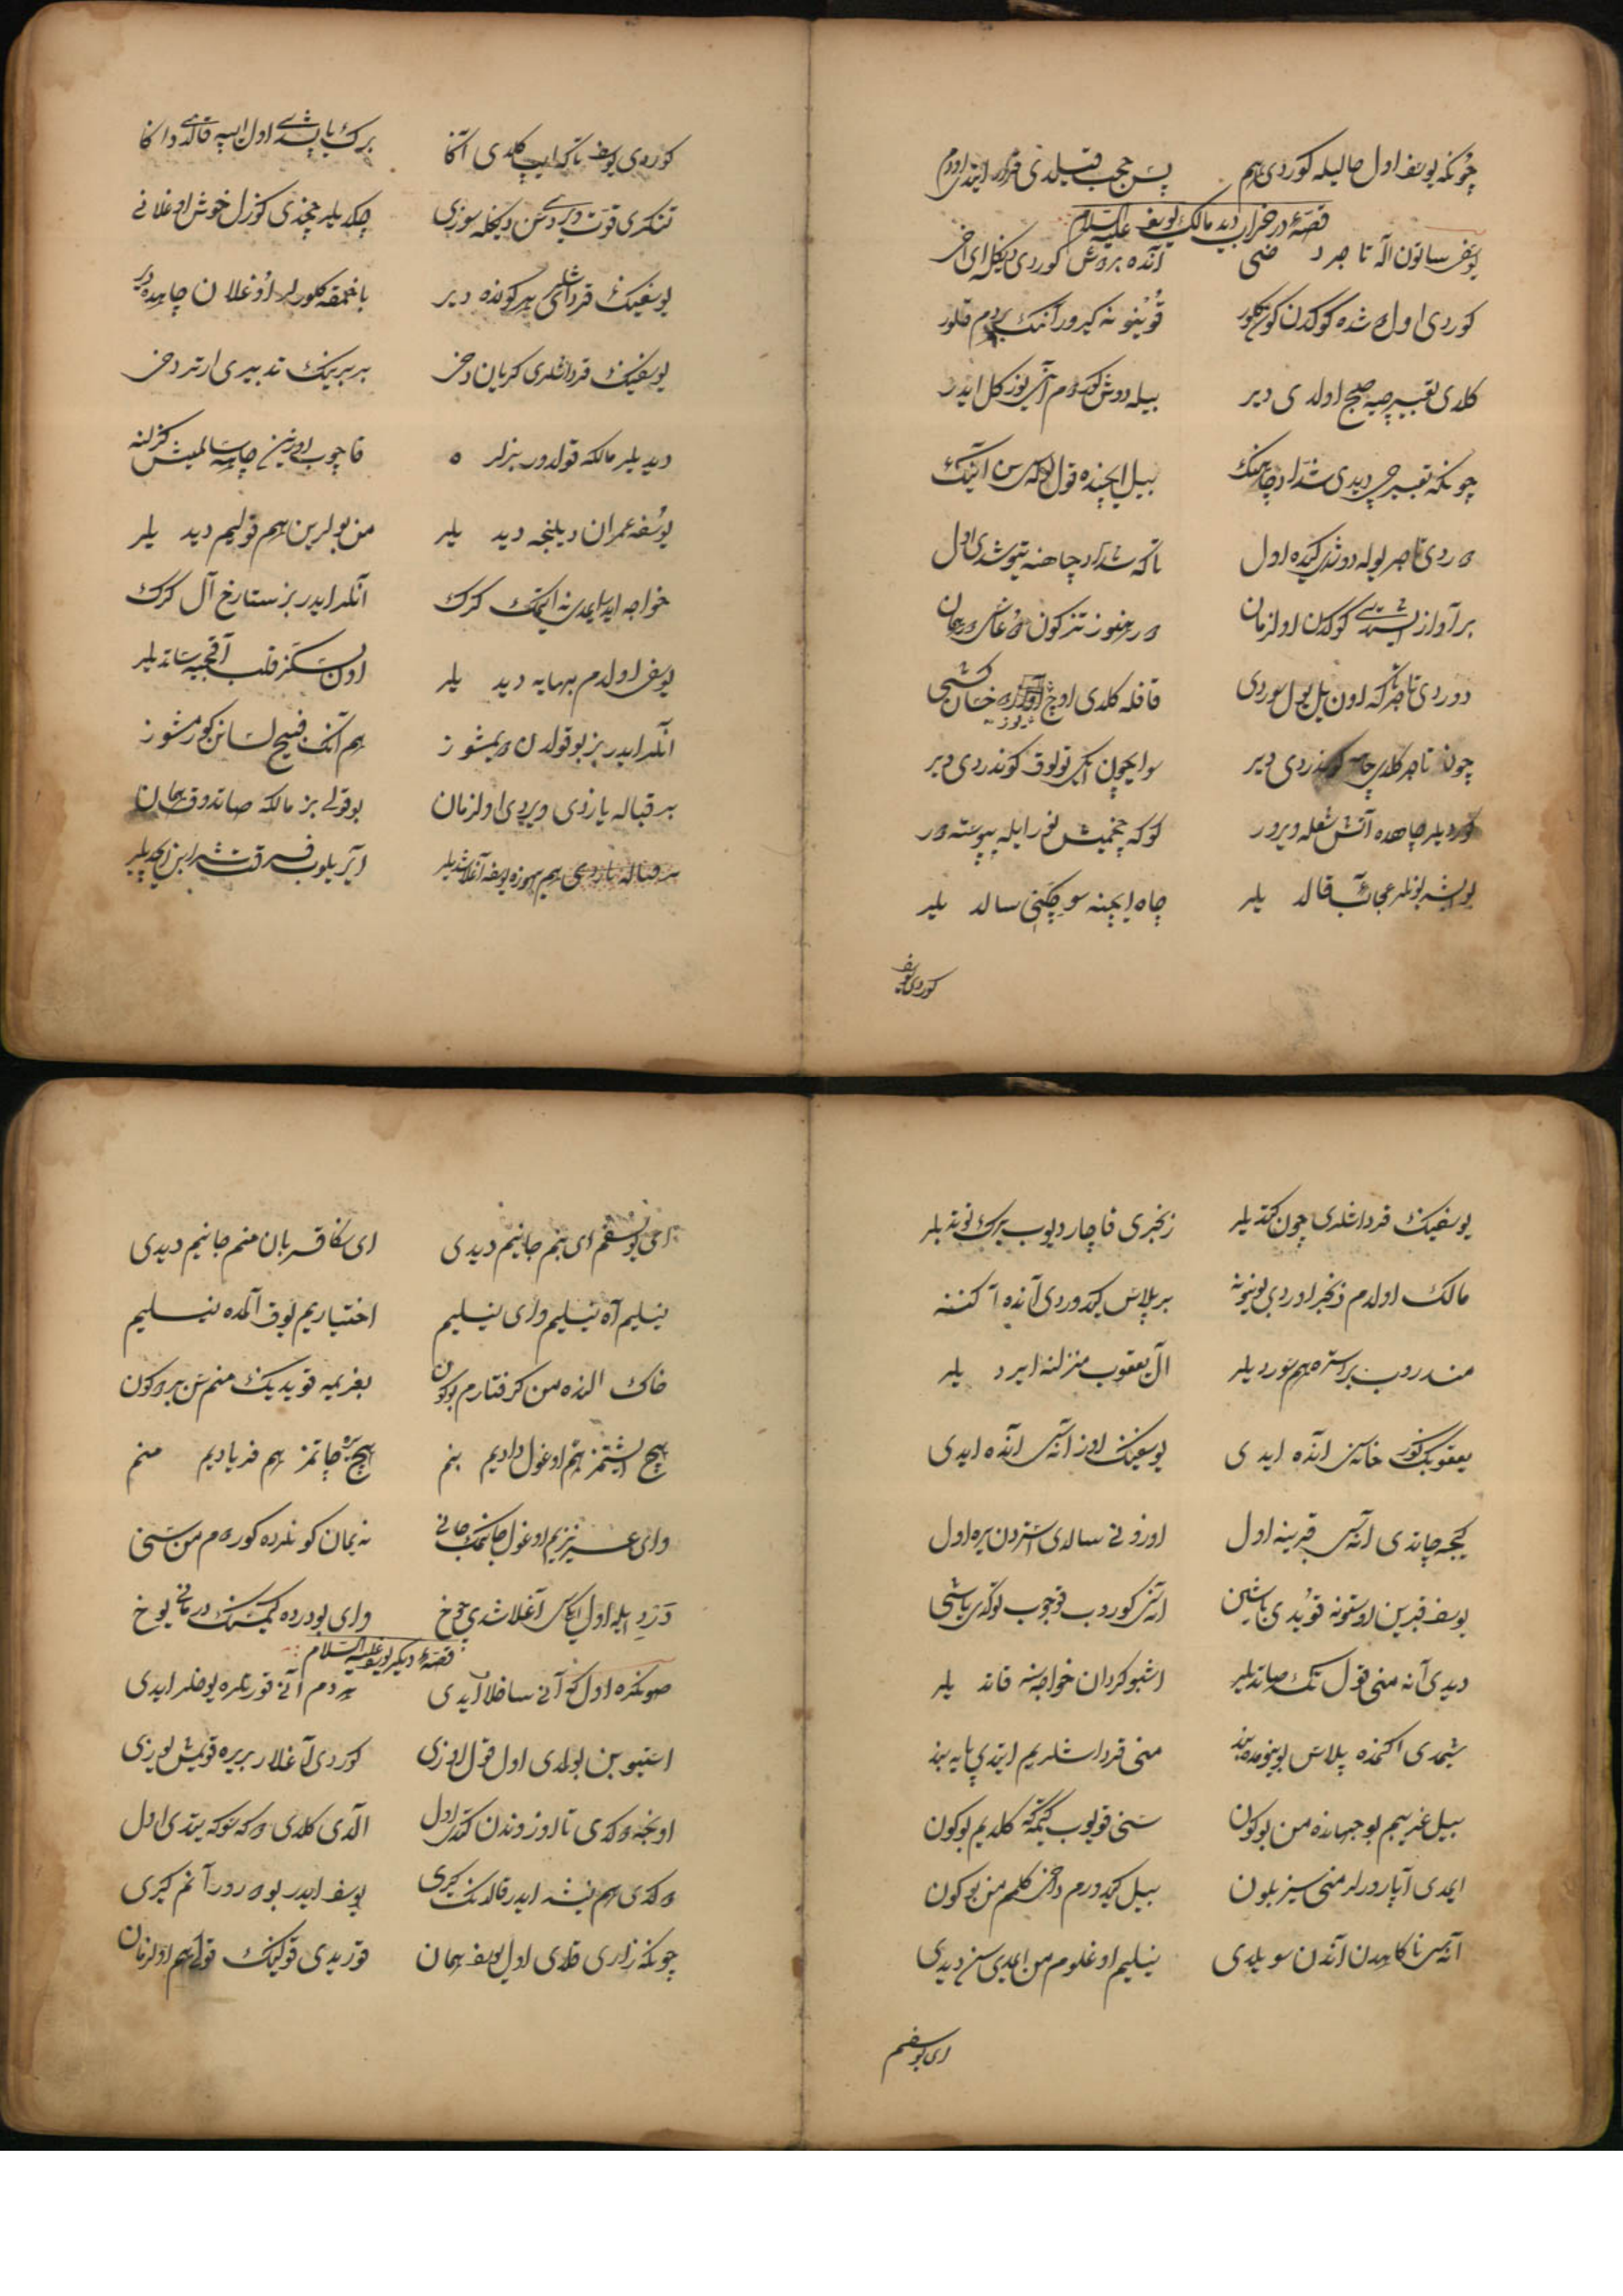 چونکه یوسف اول حالیله کوردی هم پس عجب قیلدی
قصهٔ در خواب دید مالک یوسف علیه السلام
یوسف ساتون آلا تاجر د خی آنده بر دوش کوردی دیکله ای اخی
کوردی اول دوشده کوکدن کون کلور قوینونه کیرور آنک بردم قلور
کلدی تعبیرچیه صبح اولدی دیر بیله دوش کوردم آنی یوز کل ایدر
چونکه تعبیرچی دیدی شداد چاهنک بیل ایچنده قول بوله سن آنک
ه ردی تاجر یوله دوشدی کیده اول تاکه شداد چاهنه یتوشدی اول
بر آواز ایشتدی کوکدن اولزمان
دوردی تاجر تاکه اون ییل یول سوردی قافله کلدی اوچ
چون تاجر کلدی چاهه کوندردی دیر سو ایچون ایکی قولوق کوندردی دیر
کوردیلر چاهده آتش شعله ویرور کوکه چخمیش نور ایله پیوسته در
بو ایشه بونلر عجائب قالد یلر چاه ایچنه سو چکنی سالد یلر
کوردی یوسف
کوردی یوسف تاکه ایپ کلدی آکا برک یاپشدی اول ایپه قالدی دا کا
تنکری قوت ویردی سن دیکله سوزی چکدیلر چخدی کوزل خوش اوغلانی
یوسفینک قرداشلری هر کونده دیر باخمقه کلورلر اوغلان چاهده دیر
یوسفینک قرداشلری کریان دخی بر برینک تدبیری ارتر دخی
دیدیلر مالکه قولدور بزلر ه قاچوب اوزین چاهه سالمیش کزلنه
یوسفه عمران دیلنجه دید یلر من بولرین هم قولیم دید یلر
خواجه ایدر ایمدی نه ایتمک کرک آنلر ایدر بز ستارخ آل کرک
یوسف اولدم بهایه دید یلر اون سکز قلب آقچیه ساتدیلر
آنلر ایدر بز بو قولدن ویمشوز هم آنک فصیح لسانن کورمشوز
بر قباله یازدی ویردی اولزمان بو قولی بز مالکه صاتدوق همان
بر قباله یازدی هم یوسفه آغلاشدیلر
یوسفینک قرداشلری چون کتدیلر زنجری قاچار دیوب برک توتدیلر
مالک اولدم زنجر اوردی بوینونه بر پلاس کیدوردی آنده اکننه
مندروب بر استره هم سوردیلر آل یعقوب منزلنه ایرد یلر
یعقوبک کور خانه سی آنده ایدی یوسفینک اوز آنه سی آنده ایدی
کیجه چاتدی آنه سی قبرینه اول اوزونی سالدی استردن یره اول
یوسف قبرین اوستونه قویدی باشین آنه سن کوروب قوجوب توکر یاشی
دیدی آنه منی قول تک صاتدیلر اشبو کردان خواجه سنه قاتد یلر
شمدی اکنمده پلاس بوینومده بند منی قرداشلریم ایتدی پایه بند
بیل غریبم بو جهانده من بوکون سنی قویوب کیتمکه کلدیم بوکون
ایمدی آپارورلر منی سیز بلون بیل کیدورم دخی کلمم من بوکون
آنه سی ناکاهدن آندن سویلدی نیلیم اوغلوم من ایمدی سن دیدی
ای یوسفم
ای یوسفم ای بنم جانیم دیدی ای سکا قربان منم جانیم دیدی
نیلیم آه نیلیم وای نیلیم اختیاریم یوق آلمده نیلیم
خاک النده من کرفتارم بوکون بغریمه قویدیک منم سن بر دوکون
هیچ ایشتمز هم اوغول دادیم بنم هیچ یره چاتمز هم فریادیم منم
وای عزیزیم اوغول جانمک جانی نه یمان کونلرده کوردم من سنی
درد ایله اول ایکیسی آغلاشدی چوخ وای بو درده کیمسنک درمانی یوخ
قصهٔ دیکر یوسف علیه السلام
صونکره اول که آنی ساخلا ایدی هر دم آنی قورتلره یوخلر ایدی
استیو بن بولدی اول قول اوزی کوردی آغلار بر یره قویمش یوزی
اونجه دوکدی تا اوزوندن کتدی اول الدی کلدی دوکه سوکه یتدی اول
چونکه زاری قلدی اول یوسف همان قوریدی قولینک قولی هم اولزمان